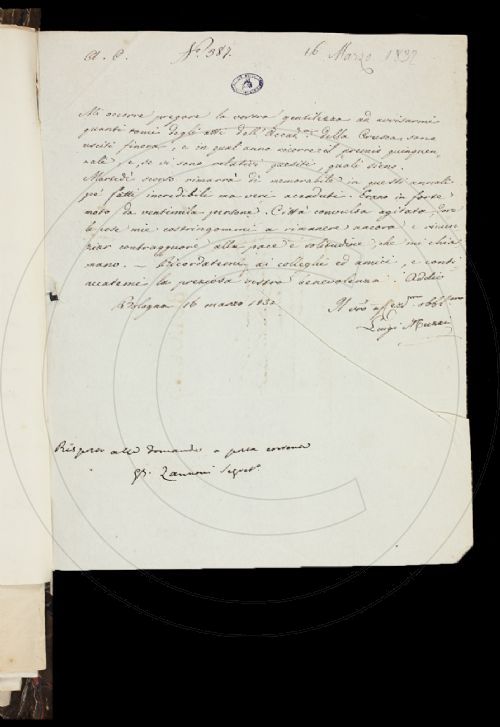 A. C. N.° 387. 16 Marzo 1832
Mi occorre pregare la vostra gentilezza ad avvisarmi
quanti tomi degli atti dell'Accad.ia della Crusca, sono
usciti finora, e in qual anno ricorre il premio quinquen-
nale e se vi sono relativi quesiti, quali sieno.
Martedì scorso rimarrà dì memorabile in questi annali
pe' fatti incredibili ma veri accaduti. Erano in forte
moto da ventimila persone. Città convulsa agitata, dove
le cose mie costringonmi a rimanere ancora e
contraggenio alla pace e solitudine che mi chia
mano. — Ricordatemi ai colleghi ed amici, e conti-
nuatemi la preziosa vostra benevolenza. Addio
Bologna 16 marzo 1832
Il vro aff.mo
Luigi Muzzi
Risposto alle domande a posta corrente
G. B. Zannoni Segret.o